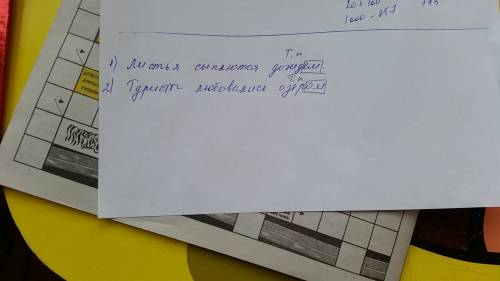 20 + 100
1000 - 257
Т.п
1) Листья сыплются дождем
Т.п
2) Туристы любовались озером